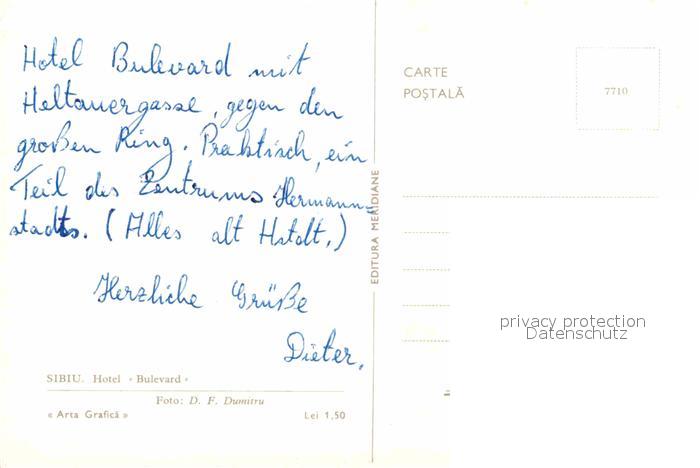 Hotel Bulevard mit
Heltauergasse, gegen den
großen Ring. Praktisch, ein
Teil des Zentrums Hermann-
stadts. (Alles alt Hstdt.)
Herzliche Grüße
Dieter.
SIBIU. Hotel « Bulevard »
Foto: D. F. Dumitru
« Arta Grafică »
Lei 1,50
EDITURA MERIDIANE
CARTE
POȘTALĂ
7710
privacy protection
Datenschutz